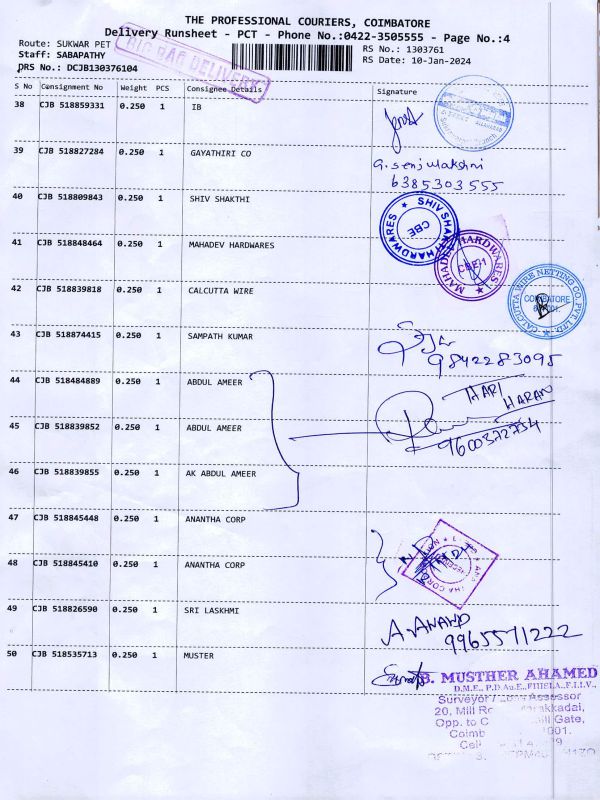 THE PROFESSIONAL COURIERS, COIMBATORE
Delivery Runsheet - PCT - Phone No.:0422-3505555 - Page No.:4
Route: SUKWAR PET
RS No.: 1303761
Staff: SABAPATHY
RS Date: 10-Jan-2024
DRS No.: DCJB130376104
BIG BAG DELIVERY
S No Consignment No Weight PCS Consignee Details Signature
38 CJB 518859331 0.250 1 IB
39 CJB 518827284 0.250 1 GAYATHIRI CO
G. senjulakshni
6385303555
40 CJB 518809843 0.250 1 SHIV SHAKTHI
SHIV SHAKTHI HARDWARES
CBE
41 CJB 518848464 0.250 1 MAHADEV HARDWARES
MAHADEV HARDWARES
42 CJB 518839818 0.250 1 CALCUTTA WIRE
CALCUTTA WIRE NETTING CO. PVT. LTD.
COIMBATORE
43 CJB 518874415 0.250 1 SAMPATH KUMAR
9842283095
44 CJB 518484889 0.250 1 ABDUL AMEER
HARI
HARAN
45 CJB 518839852 0.250 1 ABDUL AMEER
9600372734
46 CJB 518839855 0.250 1 AK ABDUL AMEER
47 CJB 518845448 0.250 1 ANANTHA CORP
48 CJB 518845410 0.250 1 ANANTHA CORP
49 CJB 518826590 0.250 1 SRI LASKHMI
A. ANAND
9965571222
50 CJB 518535713 0.250 1 MUSTER
B. MUSTHER AHAMED
D.M.E., P.D.Au.E., FIIISLA., F.I.I.V.,
Surveyor / Loss Assessor
20, Mill
Opp. to Mill Gate,